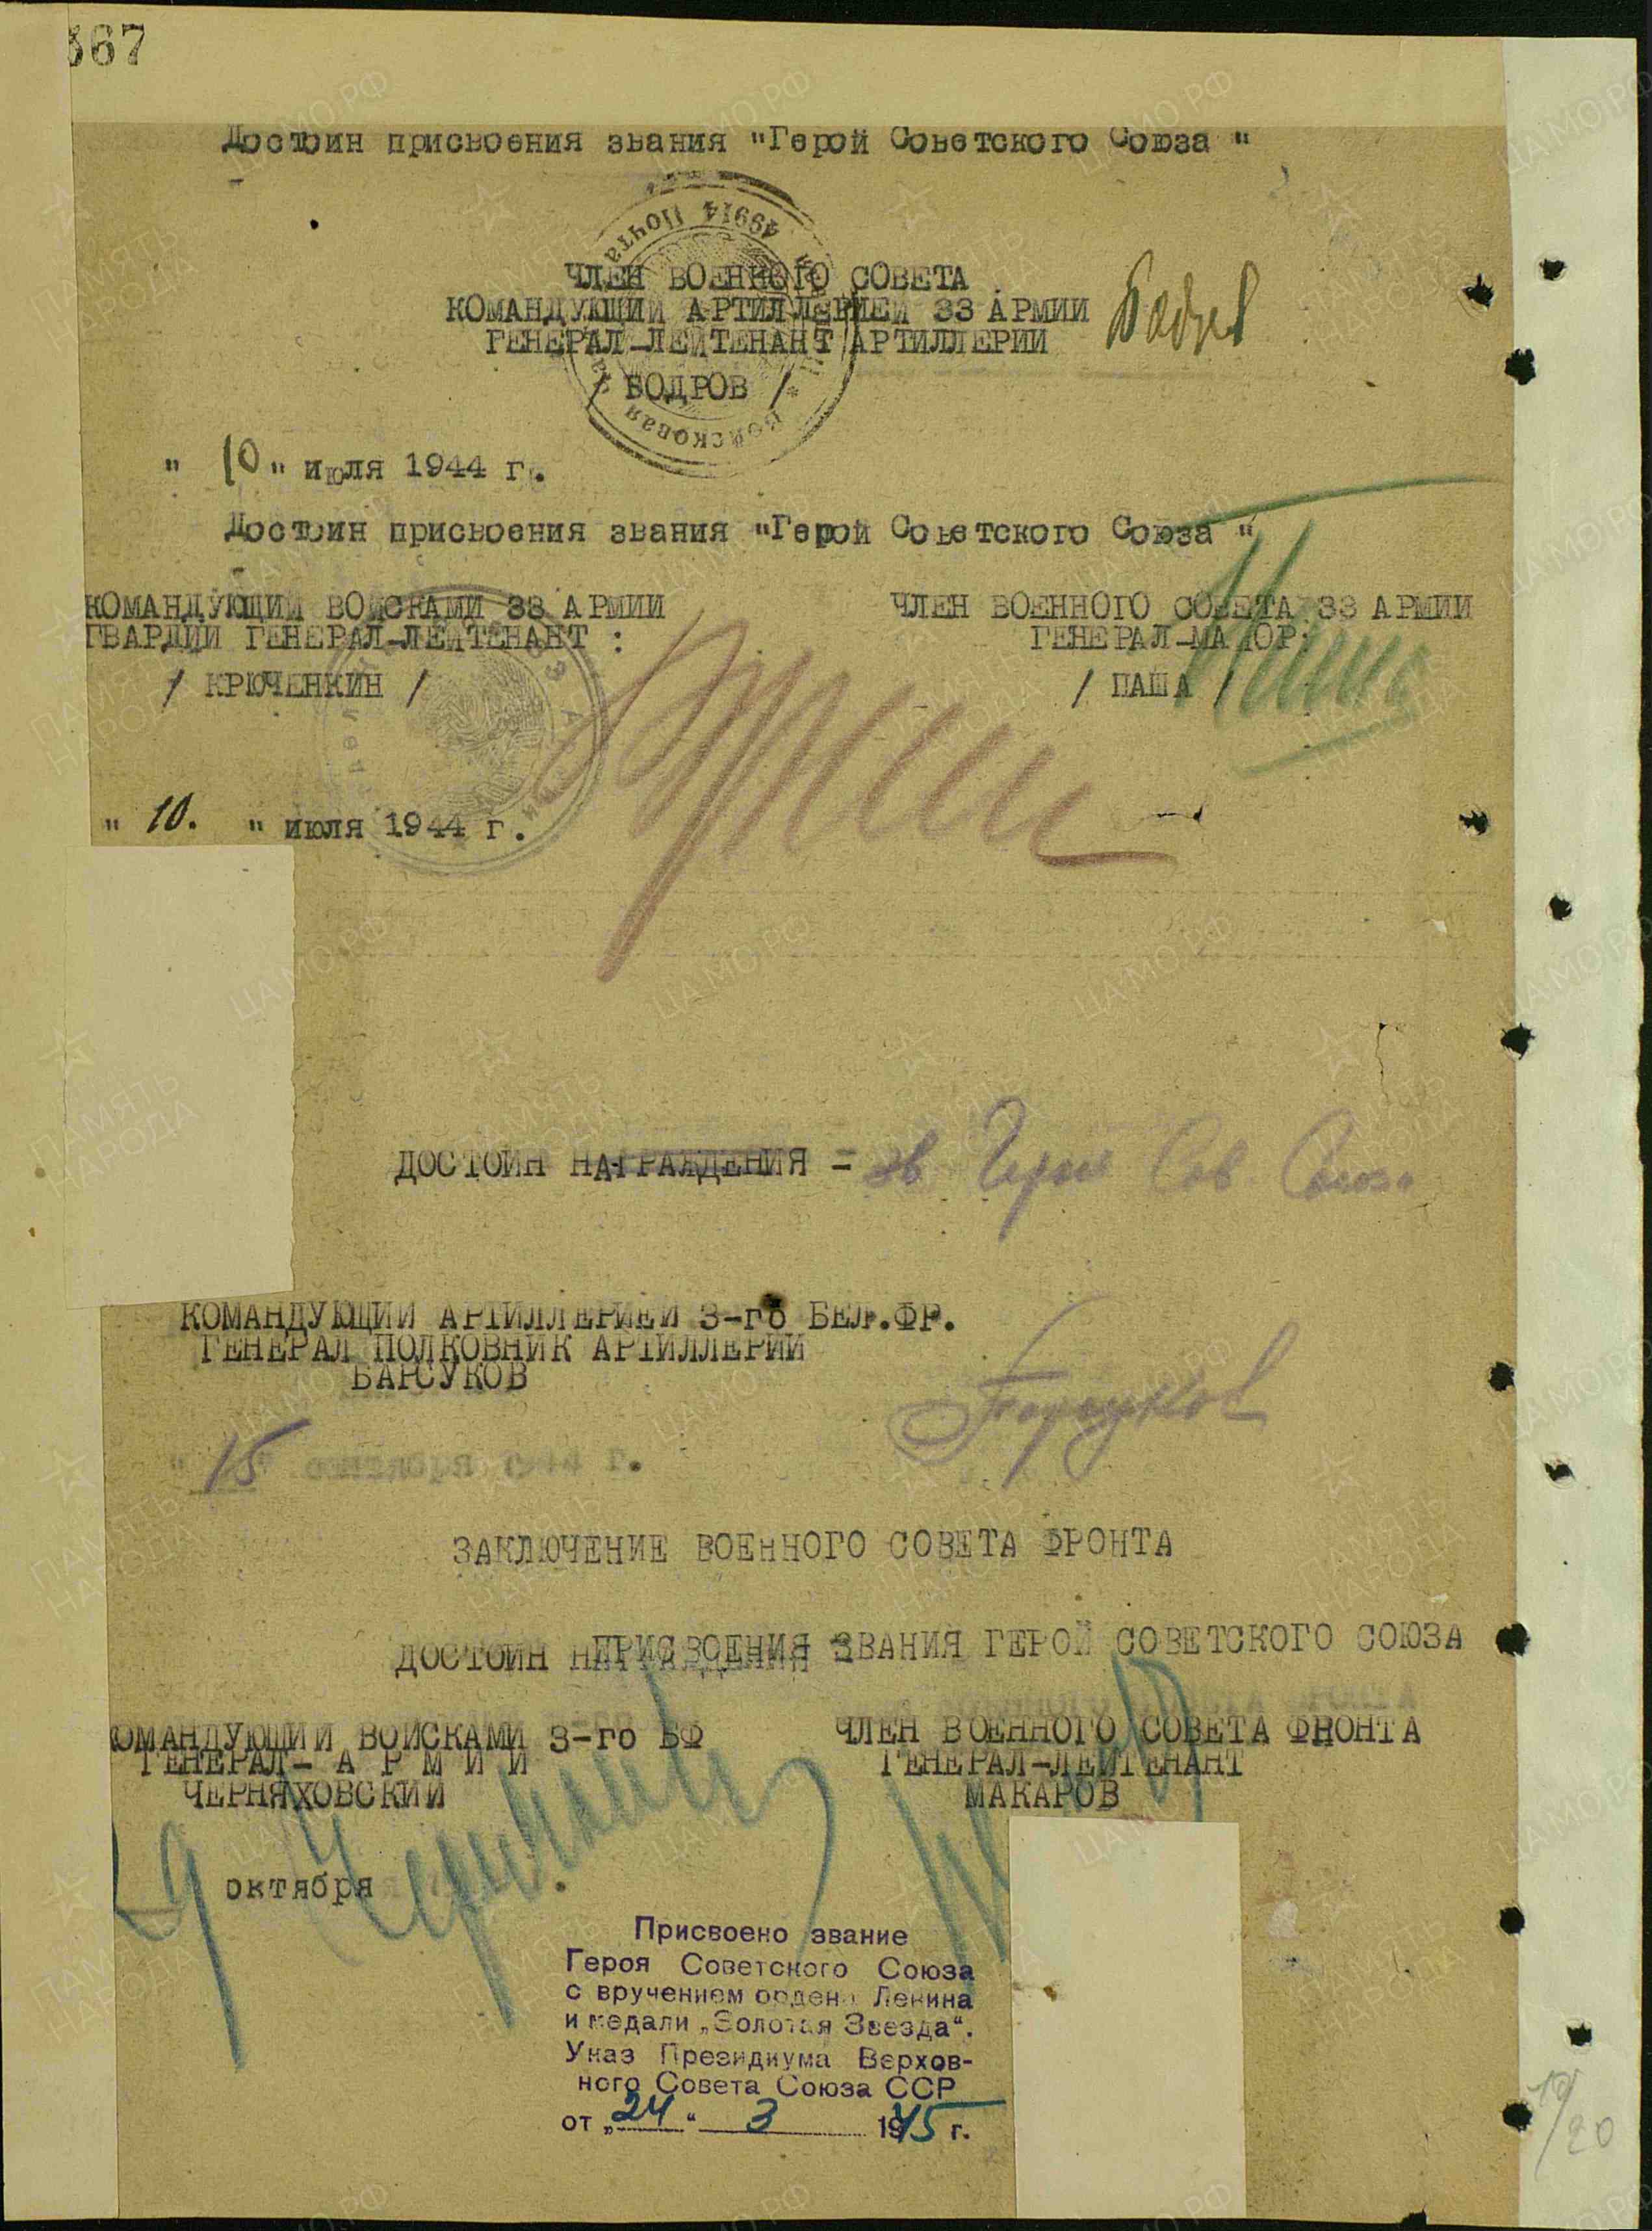 367
Достоин присвоения звания "Герой Советского Союза "
49914 Почта
ЧЛЕН ВОЕННОГО СОВЕТА
КОМАНДУЮЩИЙ АРТИЛЛЕРИЕЙ 33 АРМИИ
ГЕНЕРАЛ-ЛЕЙТЕНАНТ АРТИЛЛЕРИИ
/ БОДРОВ /
Войсковая
" 10 " июля 1944 г.
Достоин присвоения звания "Герой Советского Союза "
КОМАНДУЮЩИЙ ВОЙСКАМИ 33 АРМИИ
ГВАРДИИ ГЕНЕРАЛ-ЛЕЙТЕНАНТ :
/ КРЮЧЕНКИН /
ЧЛЕН ВОЕННОГО СОВЕТА 33 АРМИИ
ГЕНЕРАЛ-МАЙОР:
/ ПАША /
" 10. " июля 1944 г.
ДОСТОИН НАГРАЖДЕНИЯ - зв. Героя Сов. Союза
КОМАНДУЮЩИЙ АРТИЛЛЕРИЕЙ 3-го БЕЛ.ФР.
ГЕНЕРАЛ ПОЛКОВНИК АРТИЛЛЕРИИ
БАРСУКОВ
Барсуков
" 15 " октября 1944 г.
ЗАКЛЮЧЕНИЕ ВОЕННОГО СОВЕТА ФРОНТА
ДОСТОИН ПРИСВОЕНИЯ ЗВАНИЯ ГЕРОЙ СОВЕТСКОГО СОЮЗА
ОМАНДУЮЩИЙ ВОЙСКАМИ 3-го БФ
ГЕНЕРАЛ- А Р М И И
ЧЕРНЯХОВСКИЙ
ЧЛЕН ВОЕННОГО СОВЕТА ФРОНТА
ГЕНЕРАЛ-ЛЕЙТЕНАНТ
МАКАРОВ
октября
Присвоено звание
Героя Советского Союза
с вручением ордена Ленина
и медали „Золотая Звезда“.
Указ Президиума Верхов-
ного Совета Союза ССР
от „24“ 3 1945 г.
ПАМЯТЬ НАРОДА
ЦАМО.РФ